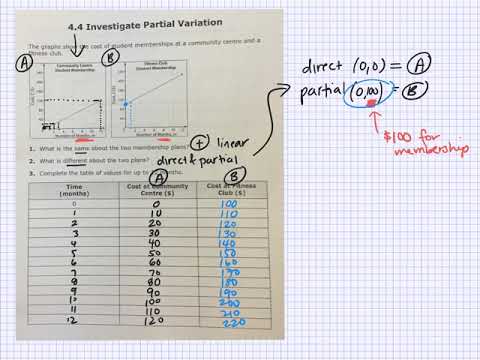 4.4 Investigate Partial Variation
The graphs show the cost of student memberships at a community centre and a
fitness club.
A
B
Community Centre
Student Membership
Fitness Club
Student Membership
Total, C ($)
Total, C ($)
Number of Months, n
Number of Months, n
1. What is the same about the two membership plans? + linear
2. What is different about the two plans? direct & partial
3. Complete the table of values for up to months.
A B
Time (months) Cost at Community Centre ($) Cost at Fitness Club ($)
0 0 100
1 10 110
2 20 120
3 30 130
4 40 140
5 50 150
6 60 160
7 70 170
8 80 180
9 90 190
10 100 200
11 110 210
12 120 220
direct (0,0) = A
partial (0,100) = B
$100 for
membership